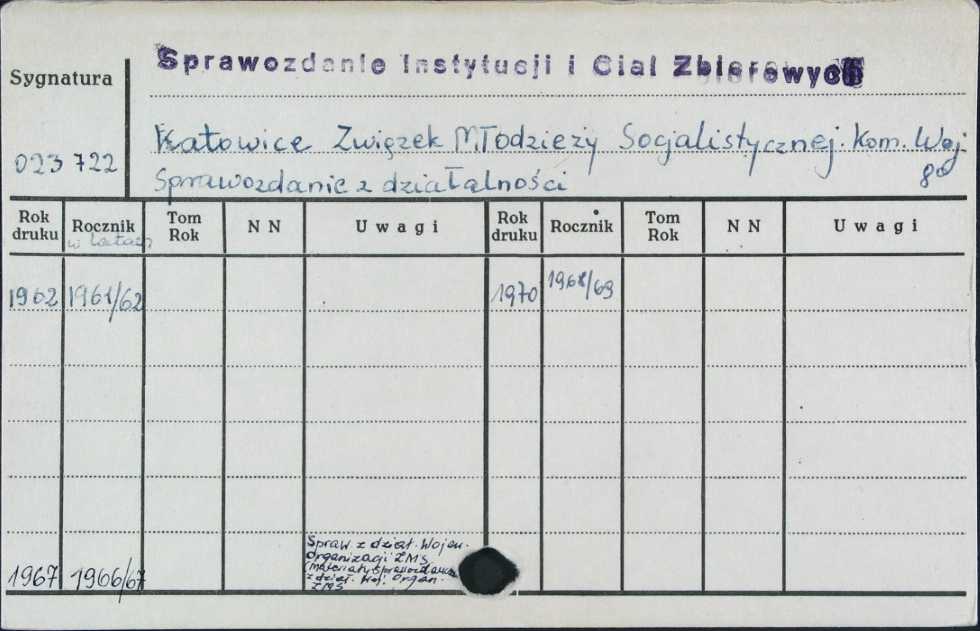 Sprawozdanie Instytucji i Cial Zbiorowych
Sygnatura
023 722
Katowice Związek Młodzieży Socjalistycznej. Kom. Woj.
Sprawozdanie z działalności
8°
Rok druku Rocznik Tom Rok NN Uwagi Rok druku Rocznik Tom Rok NN Uwagi
w latach
1962 1961/62 1970 1968/69
1967 1966/67
Spraw. z dział. Wojew.
Organizacji ZMS
(materiały sprawozdawcze
z dział. Woj. Organ.
ZMS